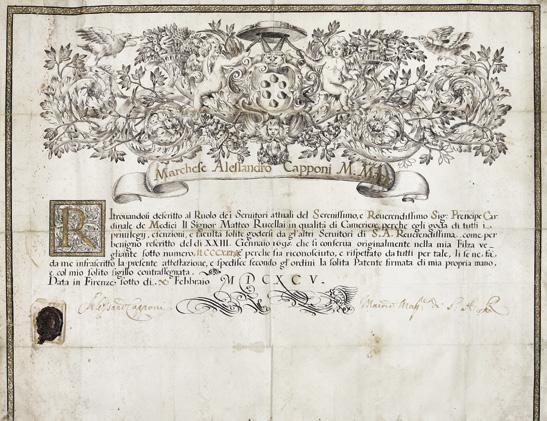 Marchese Alessandro Capponi M. M.
Ritrouandosi descritto al Ruolo dei Seruitori attuali del Serenissimo, e Reuerendissimo Sig: Prencipe Car
dinale de Medici Il Signor Matteo Rucellai in qualità di Cameriere, perche egli goda di tutti i
priuilegij, esenzioni, e facultà solite godersi da gl'altri Seruitori di S. A. Reuerendissima, come per
benigno rescritto del dì XXIII. Gennaio che si conserua originalmente nella mia Filza ve
gliante sotto numero perche sia riconosciuto, e rispettato da tutti per tale, li se ne fà
da me infrascritto la presente attestazione, e spedisce secondo gl'ordini la solita Patente firmata di mia propria mano,
e col mio solito sigillo contrassegnata.
Data in Firenze sotto dì Febbraio MDCXCV.
Alessandro Capponi di S. A.